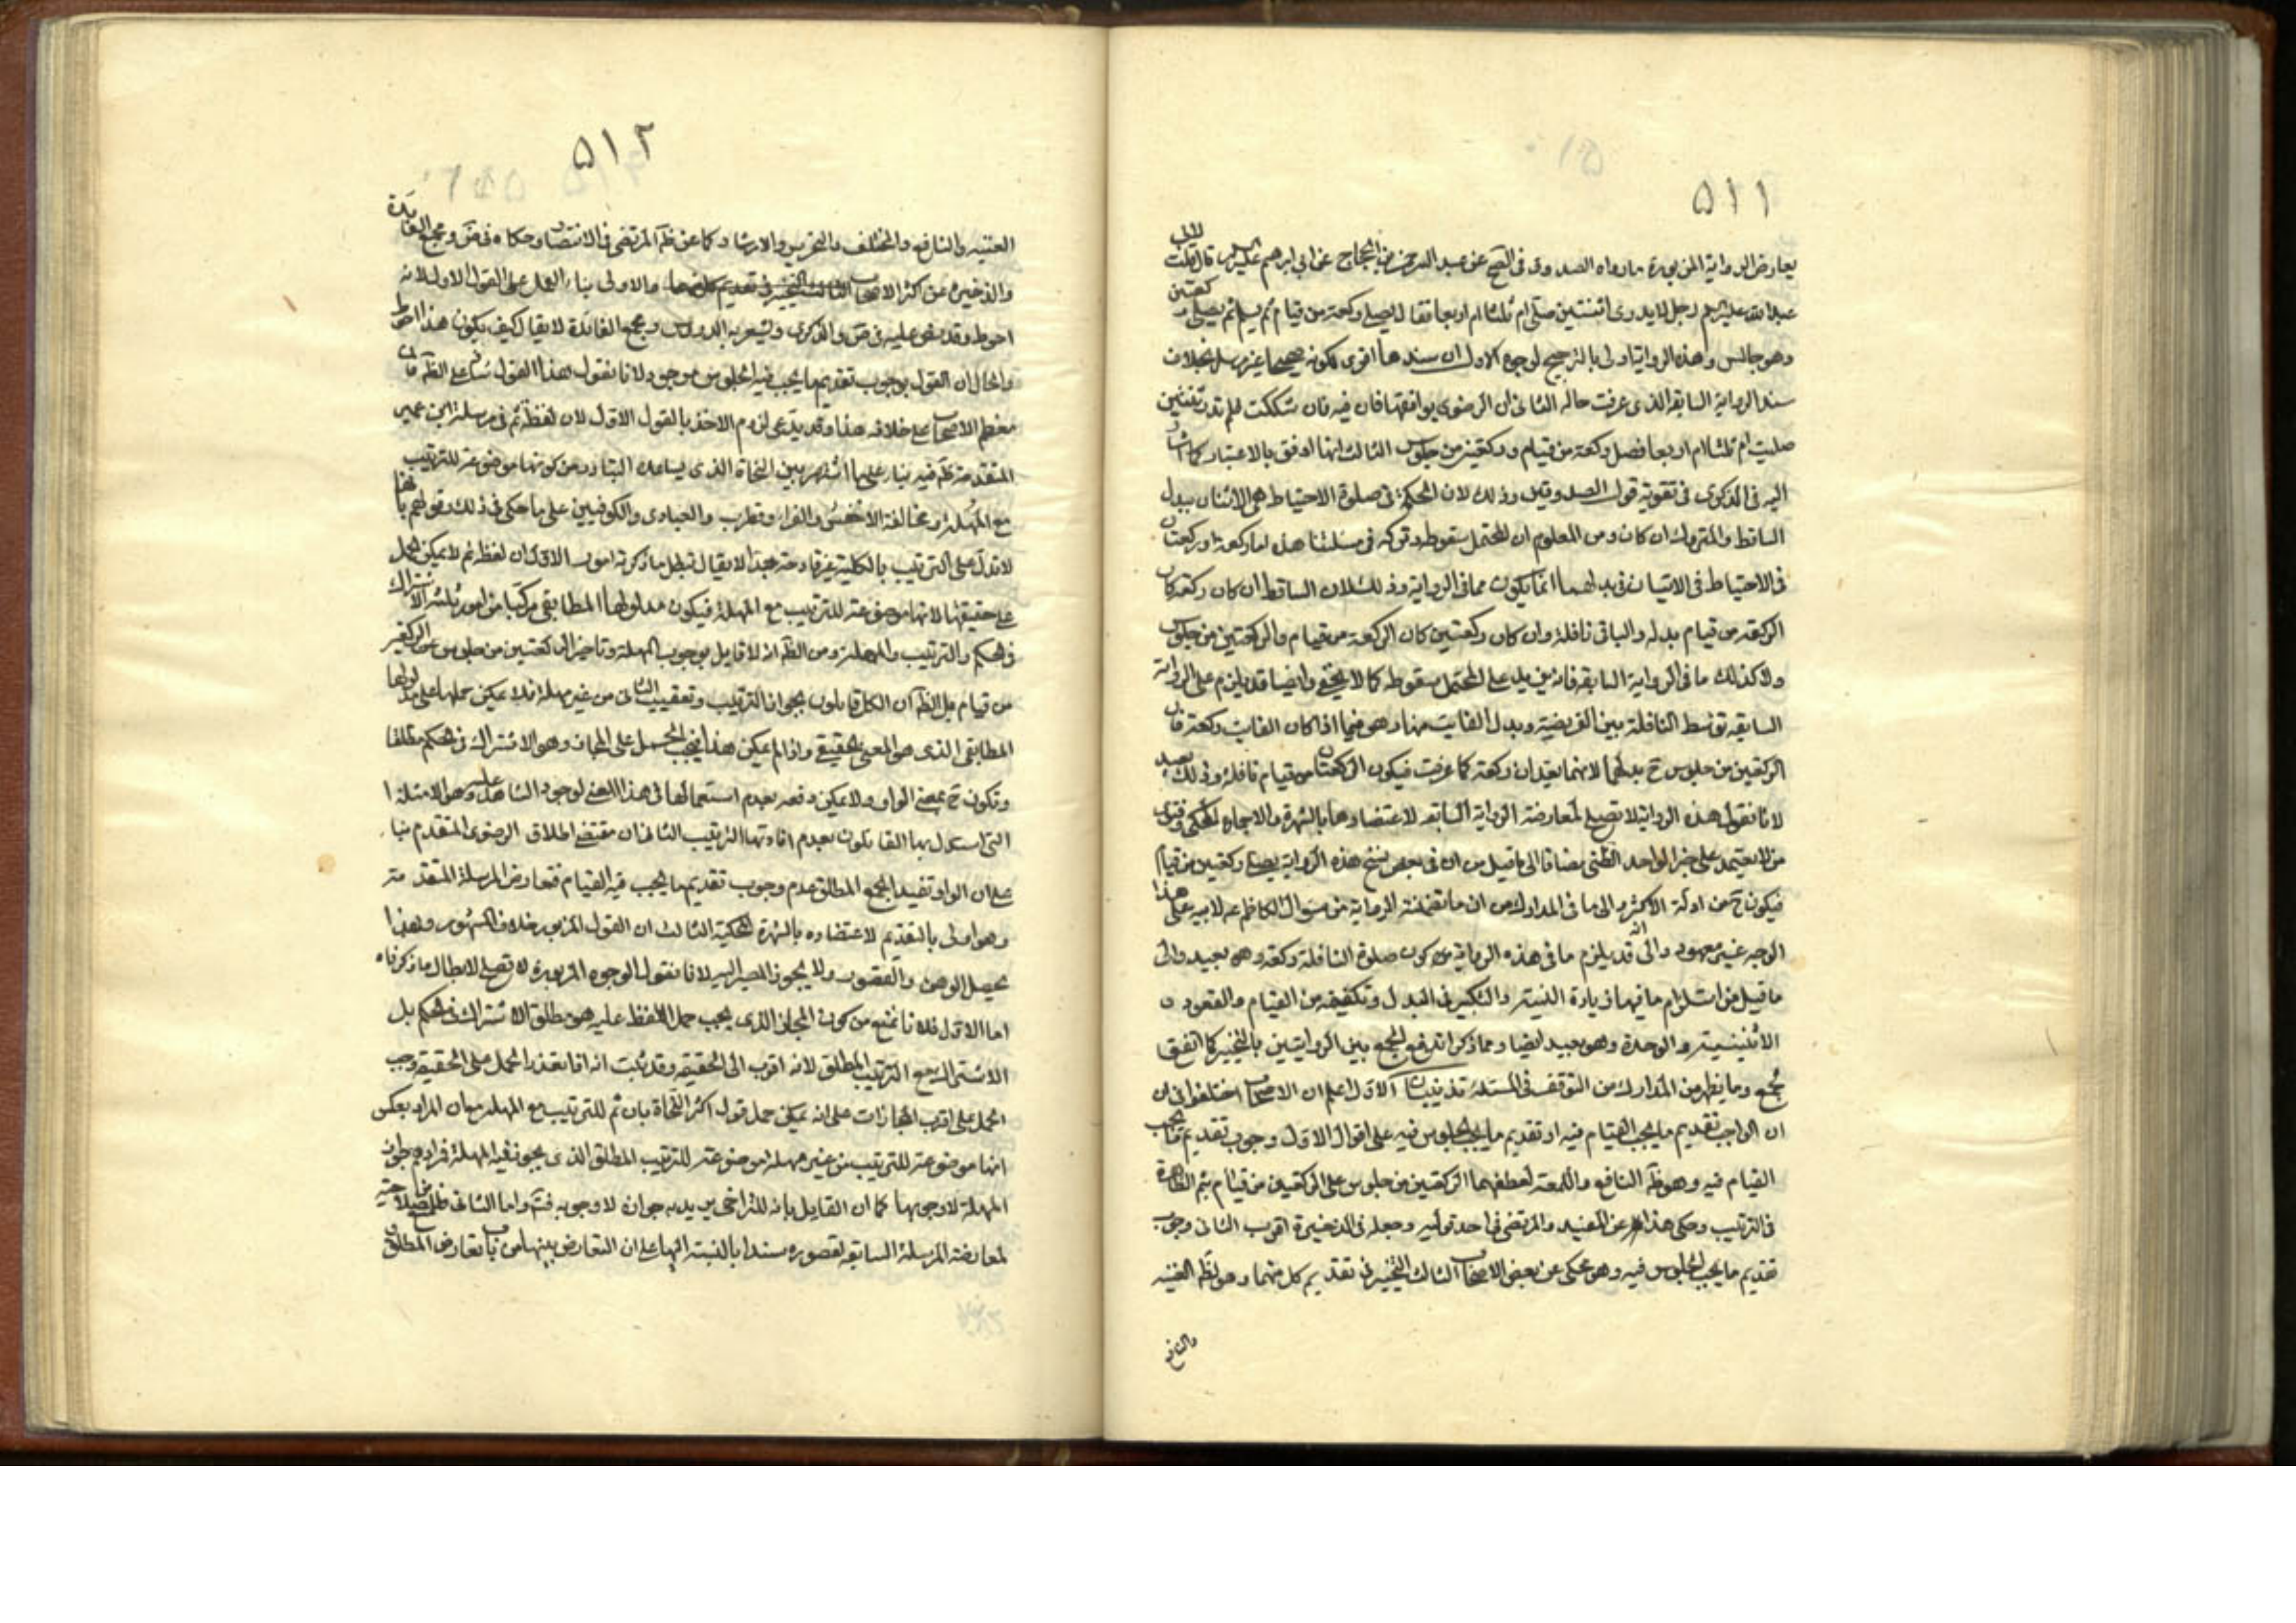 ٥١١
يعارض الرواية المزبورة ما رواه الصدوق في الصحيح عن عبد الرحمن بن الحجاج عن ابي ابرهيم قال قلت لابي
عبد الله رجل لا يدري اثنتين صلى ام ثلثا ام اربعا فقال يصلي ركعة من قيام ثم يسلم ثم يصلي ركعتين
وهو جالس وهذه الرواية اولى بالترجيح لوجوه الاول ان سندها اقوى لكونه صحيحا غير مرسل بخلاف
سند الرواية السابقة الذي عرفت حاله الثاني ان الرضوي يوافقها فان فيه فان شككت فلم تدر ثنتين
صليت ام ثلثا ام اربعا فصل ركعة من قيام وركعتين من جلوس الثالث انها اوفق بالاعتبار كما اشار
اليه في الذكرى في تقوية قول الصدوقين وذلك لان الحكمة في صلوة الاحتياط هي الاتيان ببدل
الساقط والمتروك ان كان ومن المعلوم ان المحتمل سقوطه وتركه في مسئلتنا هذه اما ركعة او ركعتان
في الاحتياط في الاتيان ببدلهما انما يكون مما في الرواية وذلك لان الساقط ان كان ركعة كان
الركعة من قيام بدله والباقي نافلة وان كان ركعتين كان الركعة من قيام والركعتين من جلوس
ولا كذلك ما في الرواية السابقة فانه يزيد على المحتمل سقوطه كما لا يخفى وايضا قد يلزم على الرواية
السابقة توسط النافلة بين الفريضة وبدل الفايت منها وهو فيما اذا كان الفايت ركعة فان
الركعتين من جلوس ح بدلها لانهما يعدان ركعة كما عرفت فيكون الركعتان من قيام نافلة وذلك بعيد
لانا نقول هذه الرواية لا تصلح لمعارضة الرواية السابقة لاعتضادها بالشهرة والاجماع المحكي وفتوى
من لا يعتمد على خبر الواحد الظني مضافا الى ما قيل من ان في بعض نسخ هذه الرواية يصلي ركعتين من قيام
فيكون ح من ادلة الاكثر والى ما في المدارك من ان ما تضمنته الرواية من سؤال الكاظم ع لابيه على هذا
الوجه غير معهود والى انه قد يلزم ما في هذه الرواية من كون صلوة النافلة ركعة وهو بعيد والى
ما قيل من استلزام ما فيها زيادة النية والتكبير في البدل وتكفيفه من القيام والقعود ن
الاثنينية والوحدة وهو بعيد ايضا ومما ذكر اندفع الجمع بين الروايتين بالتخيير كما اتفق
لجمع وما يظهر من المدارك من التوقف في المسئلة تذنيبات الاول اعلم ان الاصحاب اختلفوا في ان
ان الواجب تقديم ما يجب القيام فيه او تقديم ما يجب الجلوس فيه على اقوال الاول وجوب تقديم ما يجب
القيام فيه وهو ظ النافع واللمعة لعطفهما الركعتين من جلوس على الركعتين من قيام بثم الظاهرة
في الترتيب وحكى هذا عن المفيد والمرتضى في احد قوليه وجعله في الذخيرة اقرب الثاني وجوب
تقديم ما يجب الجلوس فيه وهو محكي عن بعض الاصحاب الثالث التخيير في تقديم كل منهما وهو لظ الغنية
والنافع
٥١٢
الغنية والنافع والمختلف والتحرير والارشاد كما عن ظ المرتضى في الانتصار وحكاه في ض ومجمع الفايدة
والذخيرة عن اكثر الاصحاب الثالث التخيير في تقديم كل منهما والاولى بناء العمل على القول الاول لانه
احوط وقد نص عليه في ض والذكرى ويشعر به الدروس ومجمع الفايدة لا يقال كيف يكون هذا احوط
والحال ان القول بوجوب تقديم ما يجب فيه الجلوس موجود لانا نقول هذا القول شاذ على الظ فان
معظم الاصحاب على خلافه هذا وقد يدعى لزوم الاخذ بالقول الاول لان لفظة ثم في مرسلة ابن ابي عمير
المتقدمة ظ فيه بناء على ما اشتهر بين النحاة الذي يساعده التبادر من كونها موضوعة للترتيب
مع المهلة ومخالفة الاخفش والفراء وقطرب والعبادي والكوفيين على ما حكى في ذلك وقولهم بانها
لا تدل على الترتيب بالكلية لا يقال تبطل ما ذكرته امور الاول ان لفظة ثم لا يمكن حمل
على حقيقتها لانها موضوعة للترتيب مع المهلة فيكون مدلولها المطابقي مركبا من امور ثلثة الاشتراك
في الحكم والترتيب والمهلة ومن الظ انه لا قايل بوجوب المهلة وتاخير الركعتين من جلوس عن الركعتين
من قيام بل الظ ان الكل قايلون بجواز الترتيب وتعقيب الثاني من غير مهلة فلا يمكن حملها على مدلولها
المطابقي الذي هو المعنى الحقيقي واذا لم يمكن هذا فيجب الحمل على المجاز وهو الاشتراك في الحكم مطلقا
وتكون ح بمعنى الواو ولا يمكن دفعه بعدم استعمالها في هذا المعنى لوجود الشاهد عليه وهو الامثلة ا
التي استدل بها القايلون بعدم افادتها الترتيب الثاني ان مقتضى اطلاق الرضوي المتقدم بناء
على ان الواو تفيد الجمع المطلق عدم وجوب تقديم ما يجب فيه القيام فتعارض المرسلة المتقدمة
وهو اولى بالتقديم لاعتضاده بالشهرة المحكية الثالث ان القول المزبور خلاف المشهور ولهذا
يحصل الوهن والقصور ولا يجوز المصير اليه لانا نقول الوجوه المزبورة لا تصلح لابطال ما ذكرناه
اما الاول فلانا نمنع من كون المجاز الذي يجب حمل اللفظ عليه هو مطلق الاشتراك في الحكم بل
الاشتراك مع الترتيب المطلق لانه اقرب الى الحقيقة وقد ثبت انه اذا تعذر الحمل على الحقيقة وجب
الحمل على اقرب المجازات على انه يمكن حمل قول اكثر النحاة بان ثم للترتيب مع المهلة
انها موضوعة للترتيب من غير مهلة للترتيب المطلق الذي يجوز فيه المهلة فرادهم
المهلة لا وجوبها كما ان القايل بانه للتراخي يريد به جوازه لا وجوبه فت واما الثاني فلعدم صلاحيته
لمعارضة المرسلة السابقة لقصوره سندا بالنسبة اليها على ان التعارض بينهما من باب تعارض المطلق